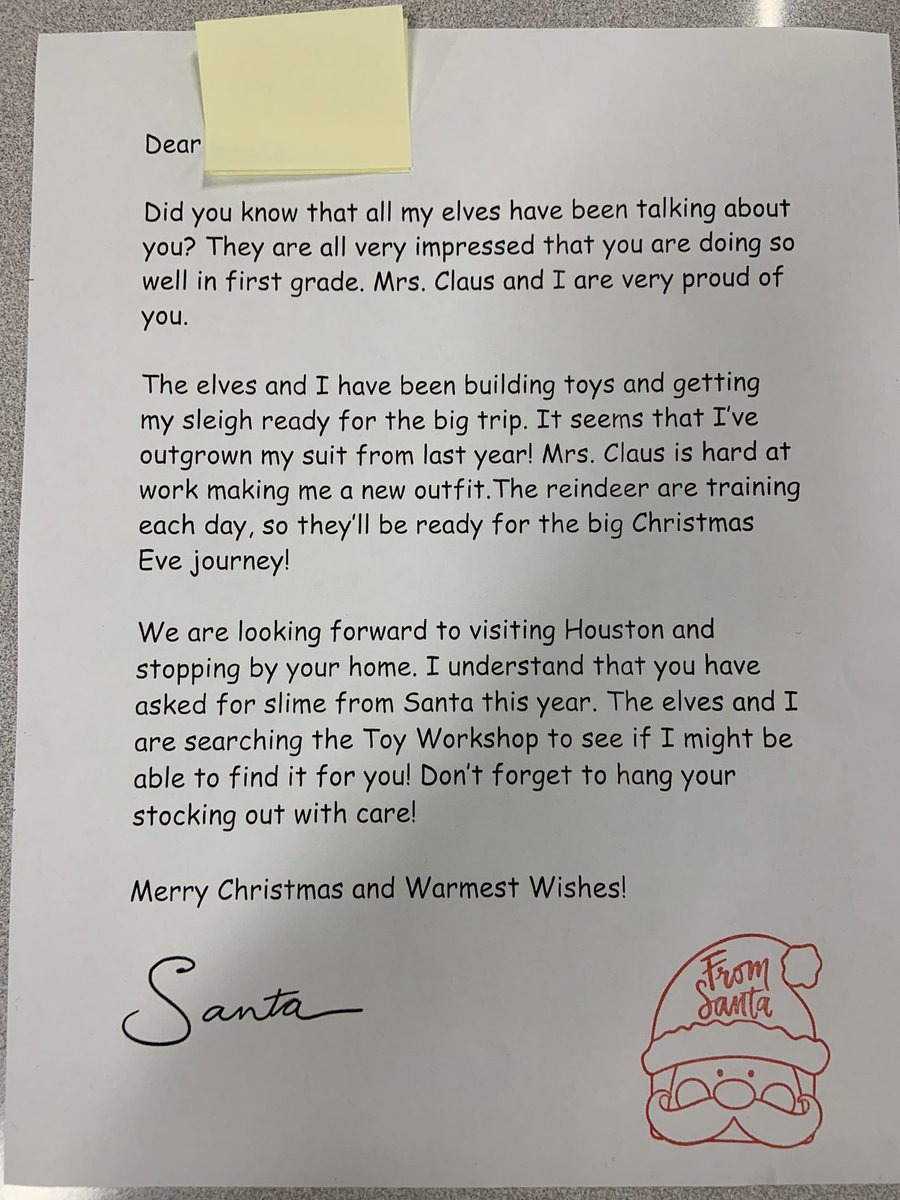 Dear
Did you know that all my elves have been talking about
you? They are all very impressed that you are doing so
well in first grade. Mrs. Claus and I are very proud of
you.
The elves and I have been building toys and getting
my sleigh ready for the big trip. It seems that I've
outgrown my suit from last year! Mrs. Claus is hard at
work making me a new outfit.The reindeer are training
each day, so they'll be ready for the big Christmas
Eve journey!
We are looking forward to visiting Houston and
stopping by your home. I understand that you have
asked for slime from Santa this year. The elves and I
are searching the Toy Workshop to see if I might be
able to find it for you! Don't forget to hang your
stocking out with care!
Merry Christmas and Warmest Wishes!
Santa
From
Santa